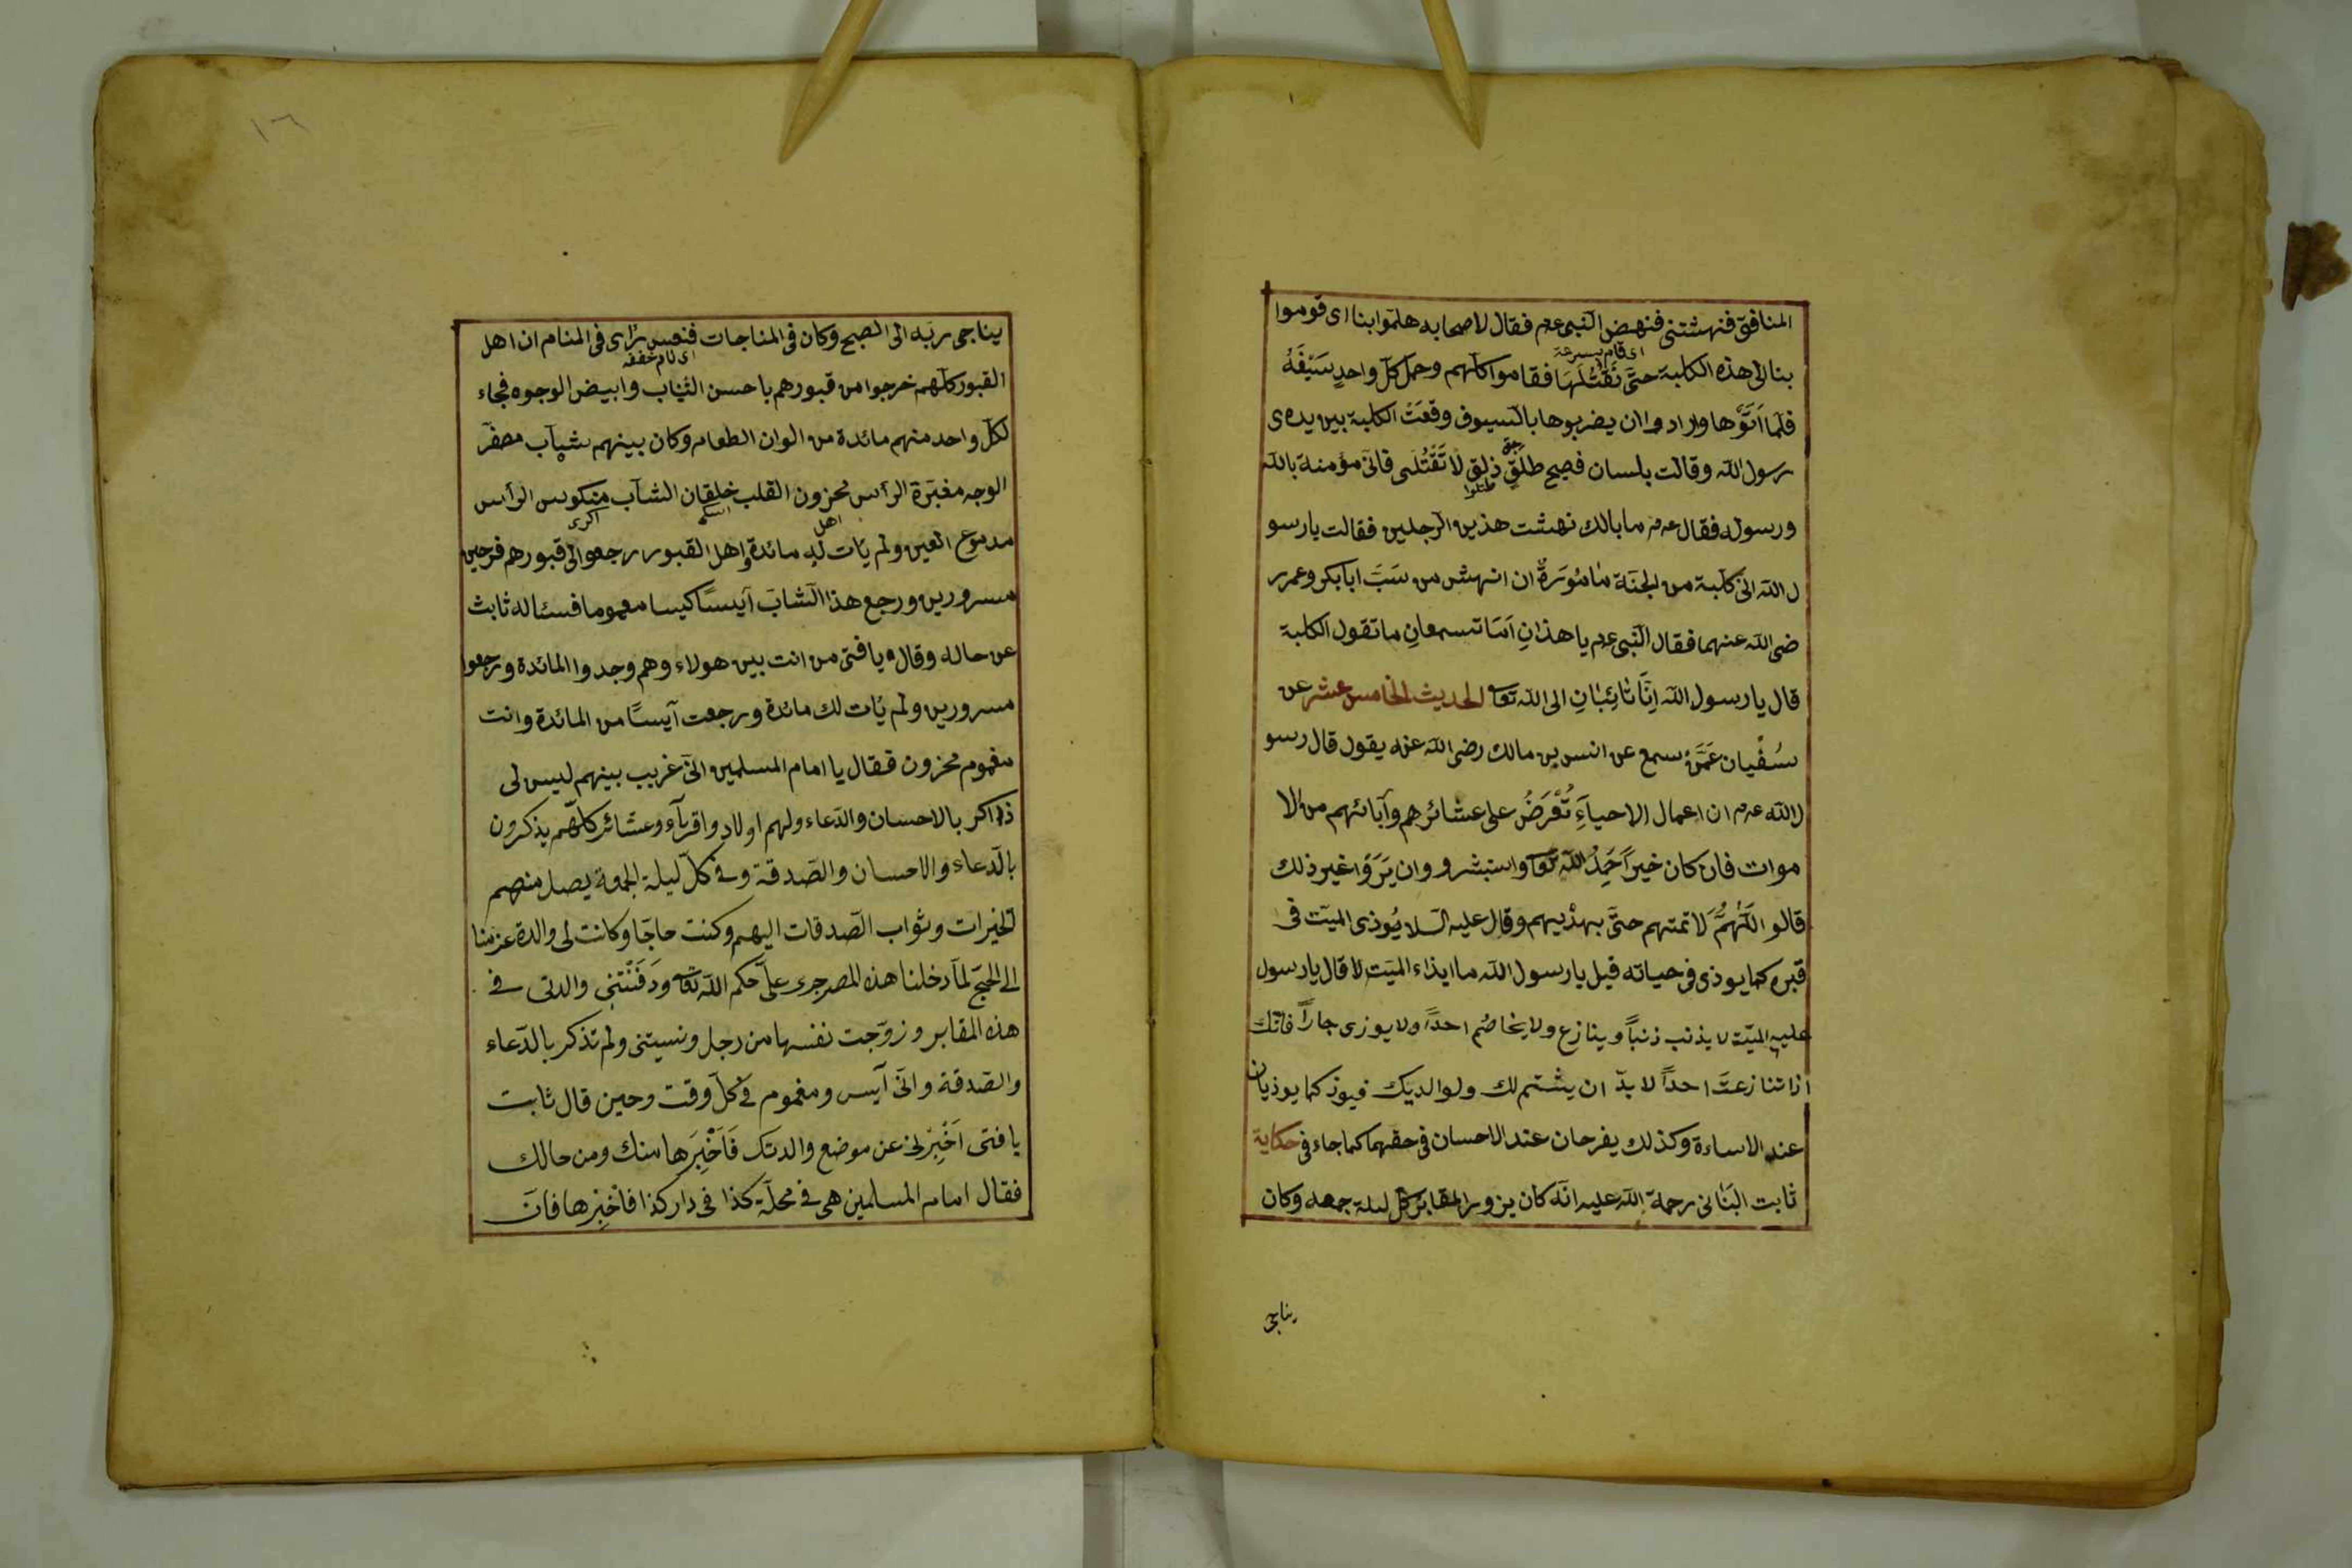 المنافق فنهشتنى فنهض النّبى عم فقال لاصحابه هلمّوا بنا اى قوموا
اى قام بسرعة
بنا الى هذه الكلبة حتَّى نَقْتُلَهَا فقاموا كلّهم وحمل كلّ واحدٍ سَيْفَهُ
فلمّا اَتَوْها وارادوا ان يضربوها بالسّيوف وقعَتْ الكلبة بين يدى
رسول اللّه وقالت بلسان فصيح طلقٍ ذلقٍ لا تَقْتُلنى فانّى مؤمنة باللّه
ورسوله فقال عم ما بالك نهشت هذين الرّجلين فقالت يا رسو
ل اللّه انّى كلبة من الجنّة مٰامُوَرةٌ ان انهش من سَبَّ ابا بكر وعمر ر
ضى اللّه عنهما فقال النّبى عم يا هذانِ اَمَا تسمعانِ ما تقول الكلبة
قال يا رسول اللّه اِنَّا تٰائِبٰانِ الى اللّه تعا الحديث الخامس عشر عن
سُفْيان عَمَّنْ سمع عن انس بن مالك رضى اللّه عنه يقول قال رسو
ل اللّه عم ان اعمال الاحياَءِ تُعْرَضُ على عشائرهم وآبائهم من الا
موات فان كان خيراً حَمِدُ اللّه تعا واستبشرو وان يَرَوْا غير ذلك
قالو اللّهُمَّ لا تمتهم حتَّى يهدّيهم وقال عليه السّلا يُوذى الميّت فى
قبره كما يوذى فى حياته قيل يا رسول اللّه ما ايذاء الميّت لا قال يا رسول
عليه الميّت لا يذنب ذنباً و ينازع ولا يخاصُم احداً ولا يوزى جاراً فانّك
اذا تنازعتَ احداً لا بدّ ان يشتم لك ولوالديك فيوذ كما يوذيان
عند الاساءة وكذلك يفرحان عند الاحسان فى حقهما كما جاء فى حكاية
ثابت البَنٰانى رحمة اللّه عليه انّه كان يزور المقابر كلّ ليلة جمعه وكان
يناجى
١٦
يناجى ربّه الى الصبح وكان فى المناجات فنعس رٰاى فى المنام ان اهل
اى نام خففه
القبور كلّهم خرجوا من قبورهم باحسن الثّياب وابيض الوجوه فجاء
لكلّ واحد منهم مائدة من الوان الطعام وكان بينهم شاب مصفّر
الوجه مغبّرة الرأس محزون القلب خلقان الشاب منكوس الرأس
اسكى
اكرى
اهل
مدموع العين ولم يأت له مائدة واهل القبور رجعوا الى قبورهم فرحين
مسرورين ورجع هذا الشّابّ آيساً كيسا مغموما فسئاله ثابث
عن حاله وقال يا فتى من انت بين هولاء وهم وجدوا المائدة ورجعوا
مسرورين ولم يأت لك مائدة ورجعت آيساً من المائدة وانت
مغموم محزون فقال يا امام المسلمين انّى غريب بينهم ليس لى
ذاكر بالاحسان والدّعاء ولهم اولاد واقرباء وعشائر كلّهم يذكرون
بالدّعاء والاحسان والصّدقة وفى كلّ ليلة الجمعة يصل منهم
الخيرات وثواب الصّدقات اليهم وكنت حاجّا وكانت لى والدة عزمنا
الى الحجّ لمّا دخلنا هذه المصر جرى علىَّ حكم اللّه تعا ودَفَنْتنى والدتى فى
هذه المقابر وزوّجت نفسها من رجل ونسيتنى ولم تذكر بالدّعاء
والصّدقة وانّى آيس ومغموم فى كلّ وقت وحين قال ثابت
يا فتى اَخْبِرْنى عن موضع والدتك فَاَخْبِرَها منك ومن حالك
فقال امام المسلمين هى فى محلّة كذا فى دار كذا فاَخْبِرها فانّ